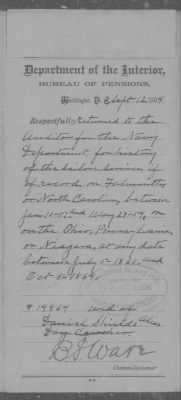 Department of the Interior,
BUREAU OF PENSIONS,
Washington, D. C. Sept 12, 1904
Respectfully returned to the
Auditor for the Navy
Department, for history
of the sailor's service, if
of record, on Falmouth
or North Carolina, between
Jan 10-57 and May 27-59, or
on the Ohio, Pennsylvania,
or Niagara, at any date
between July 5, 1861, and
Oct 8, 1864.
# 14869 wid of
Daniel Shields alias
Dan
Commissioner